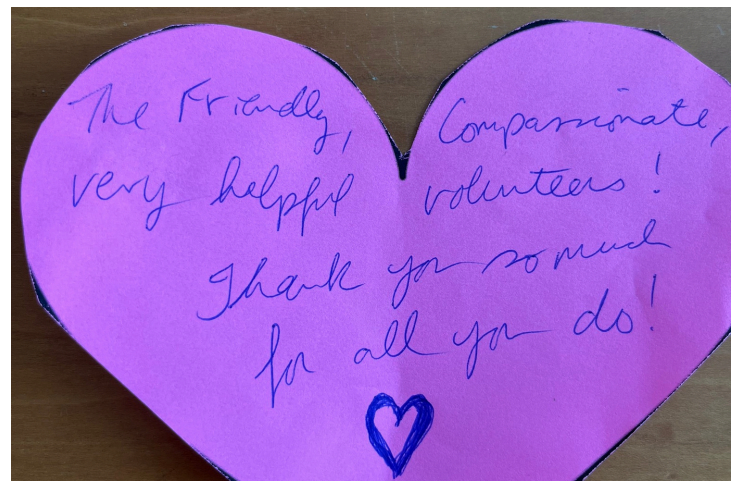 The Friendly, Compassionate,
very helpful volunteers!
Thank you so much
for all you do!